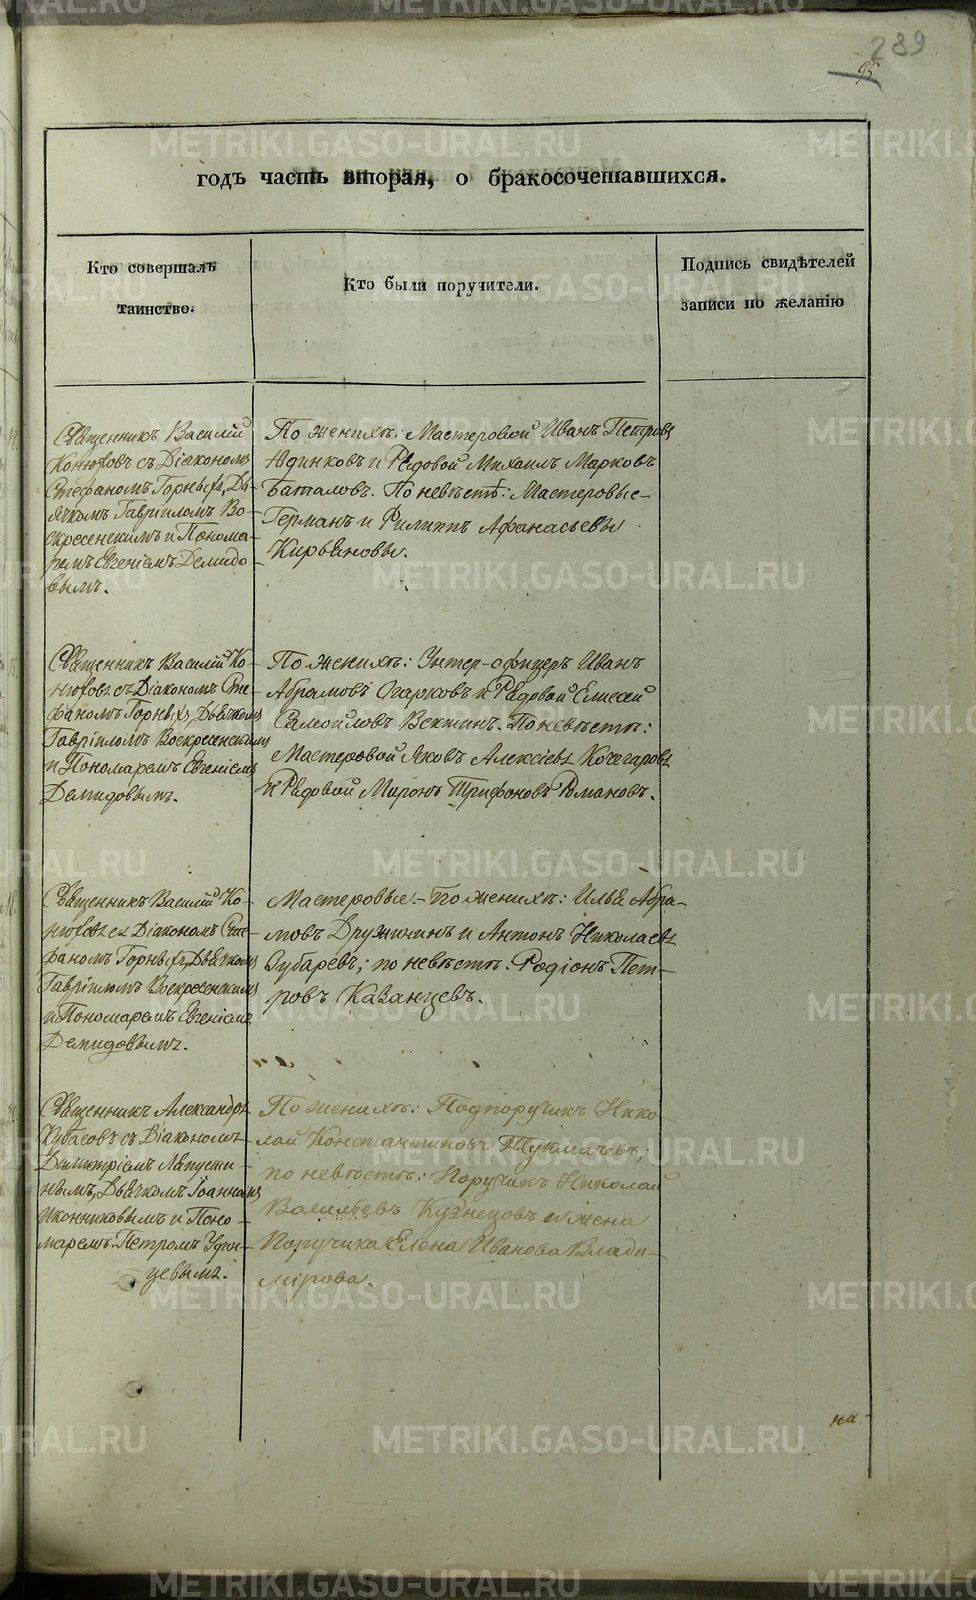 289
95
годъ часть вторая, о бракосочетавшихся.
Кто совершалъ
таинство.
Кто были поручители.
Подпись свидѣтелей
записи по желанію
Священникъ Василій
Конюховъ съ Діакономъ
Стефаномъ Горныхъ, Дь-
ячкомъ Гавріиломъ Во-
скресенскимъ и Понома-
ремъ Евгеніемъ Демидо-
вымъ.
По женихѣ: Мастеровой Иванъ Петровъ
Юдинковъ и Рядовой Михаилъ Марковъ
Баталовъ. По невѣстѣ: Мастеровые-
Германъ и Филиппъ Афанасьевы
Кирьяновы.
Священникъ Василій Ко-
нюховъ съ Діакономъ Сте-
фаномъ Горныхъ, Дьячкомъ
Гавріиломъ Воскресенскимъ
и Пономаремъ Евгеніемъ
Демидовымъ.
По женихѣ: Унтер-офицеръ Иванъ
Абрамовъ Огарковъ и Рядовой Елисей
Самойловъ Вектинъ. По невѣстѣ:
Мастеровой Яковъ Алексіевъ Кочегаровъ
и Рядовой Миронъ Трифоновъ Романовъ.
Священникъ Василій Ко-
нюховъ съ Діакономъ Сте-
фаномъ Горныхъ, Дьячкомъ
Гавріиломъ Воскресенскимъ
и Пономаремъ Евгеніемъ
Демидовымъ.
Мастеровые:- По женихѣ: Илья Абра-
мовъ Дружининъ и Антонъ Николаевъ
Зубаревъ; по невѣстѣ: Родіонъ Пет-
ровъ Казанцевъ.
Священникъ Александръ
Кубасовъ съ Діакономъ
Димитріемъ Ляпусти-
нымъ, Дьячкомъ Іоанномъ
Иконниковымъ и Поно-
маремъ Петромъ Удин-
цевымъ.
По женихѣ: Подпоручикъ Нико-
лай Константиновъ Тукмачевъ;
по невѣстѣ: Поручикъ Николай
Васильевъ Кузнецовъ и жена
Поручика Елена Иванова Влади-
мірова.
на-
METRIKI.GASO-URAL.RU